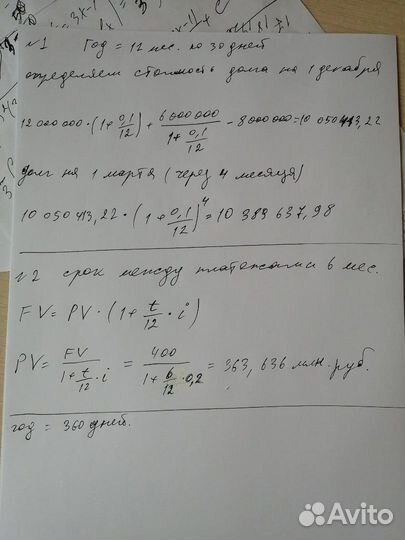 №1 Год = 12 мес. по 30 дней
определяем стоимость долга на 1 декабря
12 000 000 · (1 + 0,1/12) + 6 600 000/(1 + 0,1/12) - 8 000 000 = 10 050 413,22
долг на 1 марта (через 4 месяца)
10 050 413,22 · (1 + 0,1/12)^4 = 10 389 637,98
№2 срок между платежами 6 мес.
FV = PV · (1 + t/12 · i)
PV = FV/(1 + t/12 · i) = 400/(1 + 6/12 · 0,2) = 363,636 млн. руб.
год = 360 дней.
Avito